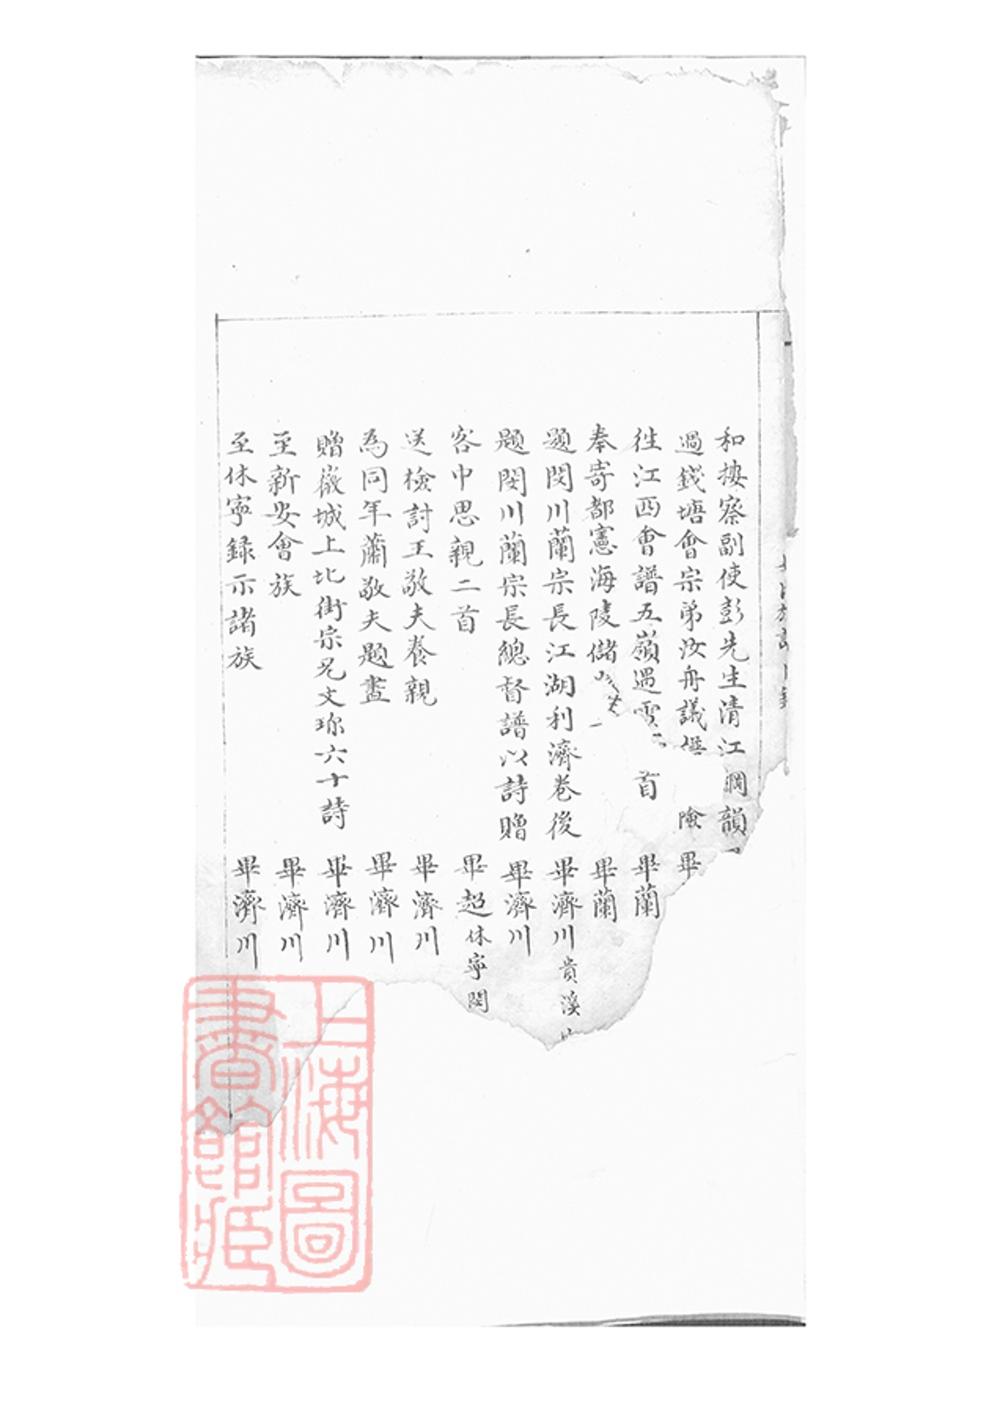 和樓察副使彭先生清江 韻
過錢塘會宗弟汝舟議 險 畢
往江西會譜五嶺遇雪 首 畢蘭
奉寄都憲海陵儲 畢蘭
題閔川蘭宗長江湖利濟卷後 畢濟川貴溪
題閔川蘭宗長總督譜以詩贈 畢濟川
客中思親二首 畢超休寧閔
送檢討王敬夫養親 畢濟川
為同年蕭敬夫題畫 畢濟川
贈徽城上北街宗兄文珎六十詩 畢濟川
至新安會族 畢濟川
至休寧録示諸族 畢濟川
上海圖
書館藏